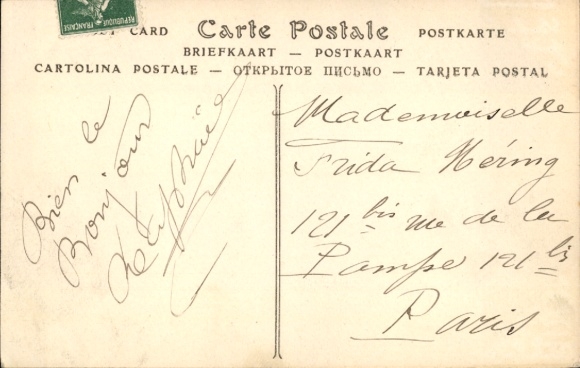 RÉPUBLIQUE FRANÇAISE
CARD Carte Postale POSTKARTE
BRIEFKAART — POSTKAART
CARTOLINA POSTALE — ОТКРЫТОЕ ПИСЬМО — TARJETA POSTAL
Bien le
Bonjour
Mademoiselle
Frida Héring
121 bis rue de la
Pompe 121 bis
Paris